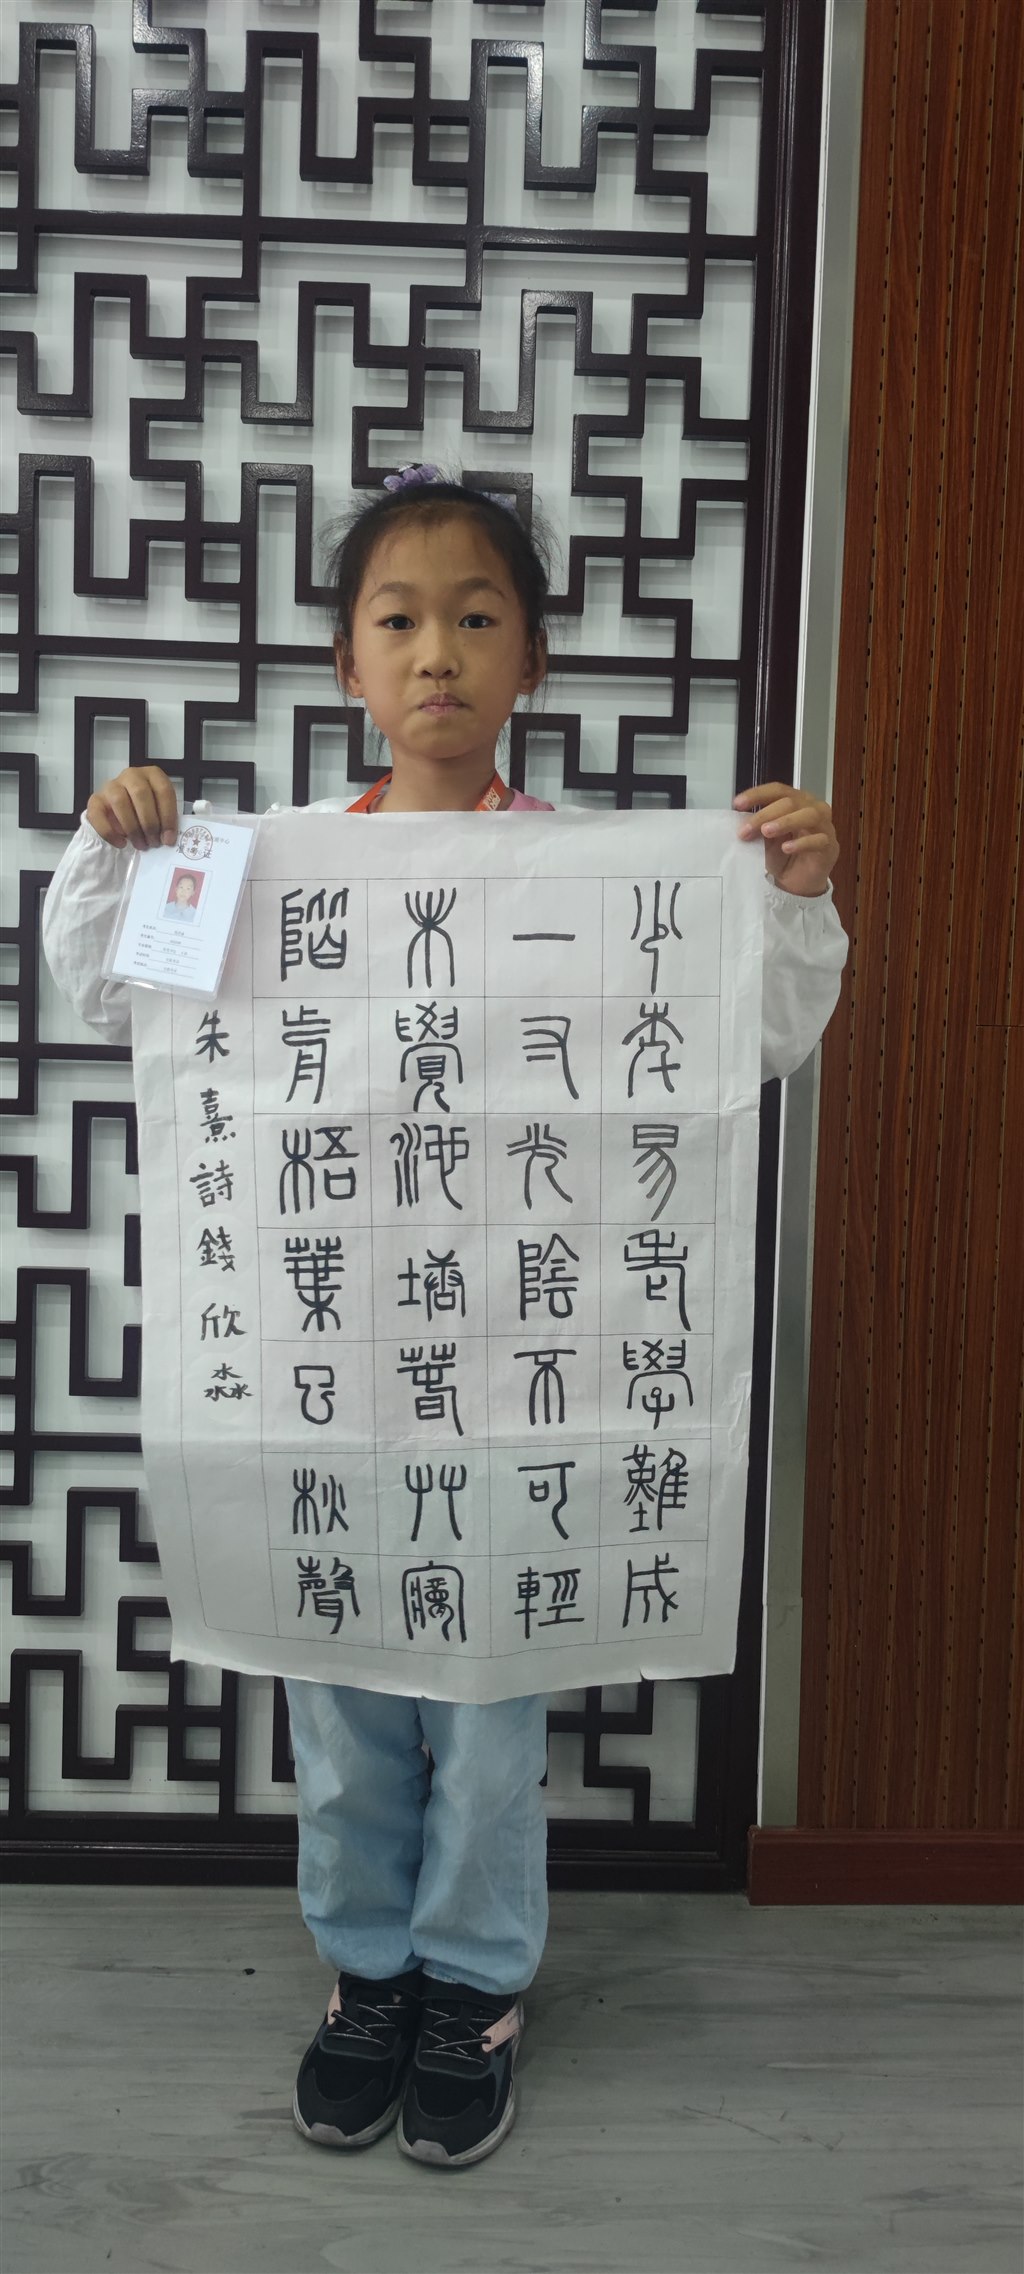 少年易老學難成
一寸光陰不可輕
未覺池塘春草夢
階前梧葉已秋聲
朱熹詩錢欣淼